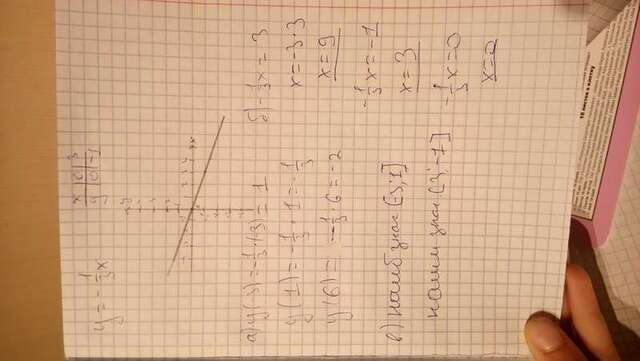 y = -1/3x
x | 0 | 3
y | 0 | -1
а) y(-3) = -1/3·(-3) = 1
y(1) = -1/3·1 = -1/3
y(6) = -1/3·6 = -2
б) -1/3x = 3
x = -3·3
x = 9
-1/3x = -1
x = 3
-1/3x = 0
x = 0
в) наиб знач [-3;1]
наим знач [3;-1]